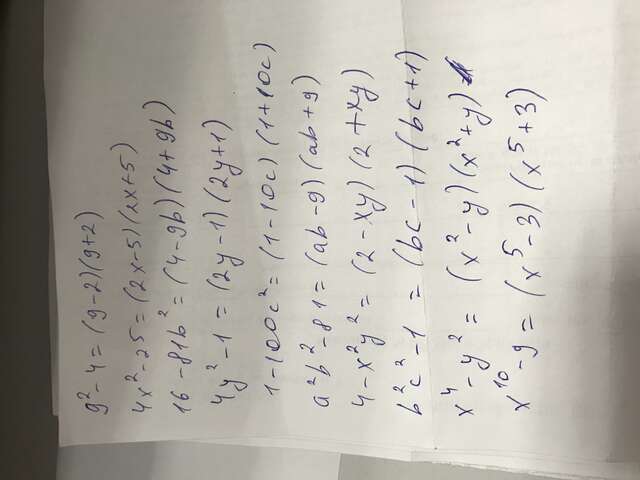 g² - 4 = (g - 2)(g + 2)
4x² - 25 = (2x - 5)(2x + 5)
16 - 81b² = (4 - 9b)(4 + 9b)
4y² - 1 = (2y - 1)(2y + 1)
1 - 100c² = (1 - 10c)(1 + 10c)
a²b² - 81 = (ab - 9)(ab + 9)
4 - x²y² = (2 - xy)(2 + xy)
b²c² - 1 = (bc - 1)(bc + 1)
x⁴ - y² = (x² - y)(x² + y)
x¹⁰ - 9 = (x⁵ - 3)(x⁵ + 3)